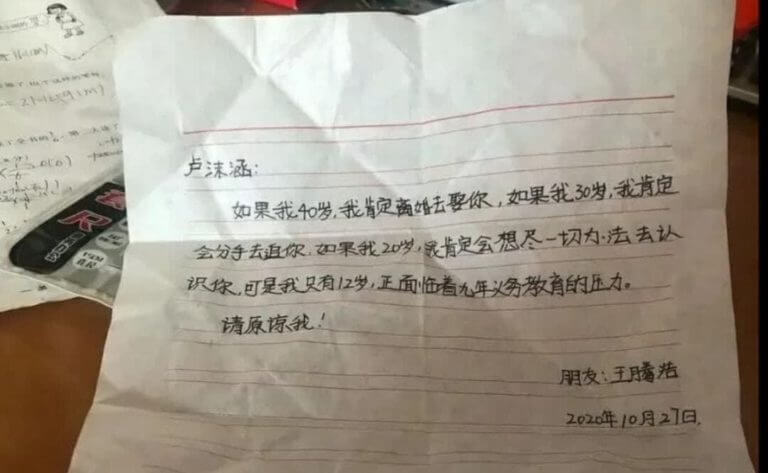 卢沫涵：
如果我40岁，我肯定离婚去娶你，如果我30岁，我肯定
会分手去追你，如果我20岁，我肯定会想尽一切办法去认
识你，可是我只有12岁，正面临着九年义务教育的压力。
请原谅我！
朋友：王腾浩
2020年10月27日.